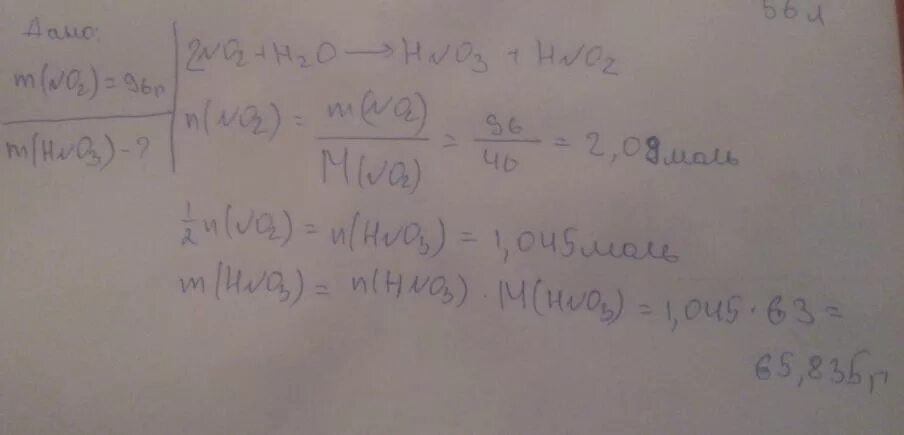 56 л
Дано:
m(NO2) = 96г
m(HNO3) - ?
2NO2 + H2O → HNO3 + HNO2
n(NO2) = m(NO2) / M(NO2) = 96 / 46 = 2,09 моль
1/2 n(NO2) = n(HNO3) = 1,045 моль
m(HNO3) = n(HNO3) · M(HNO3) = 1,045 · 63 =
65,835 г